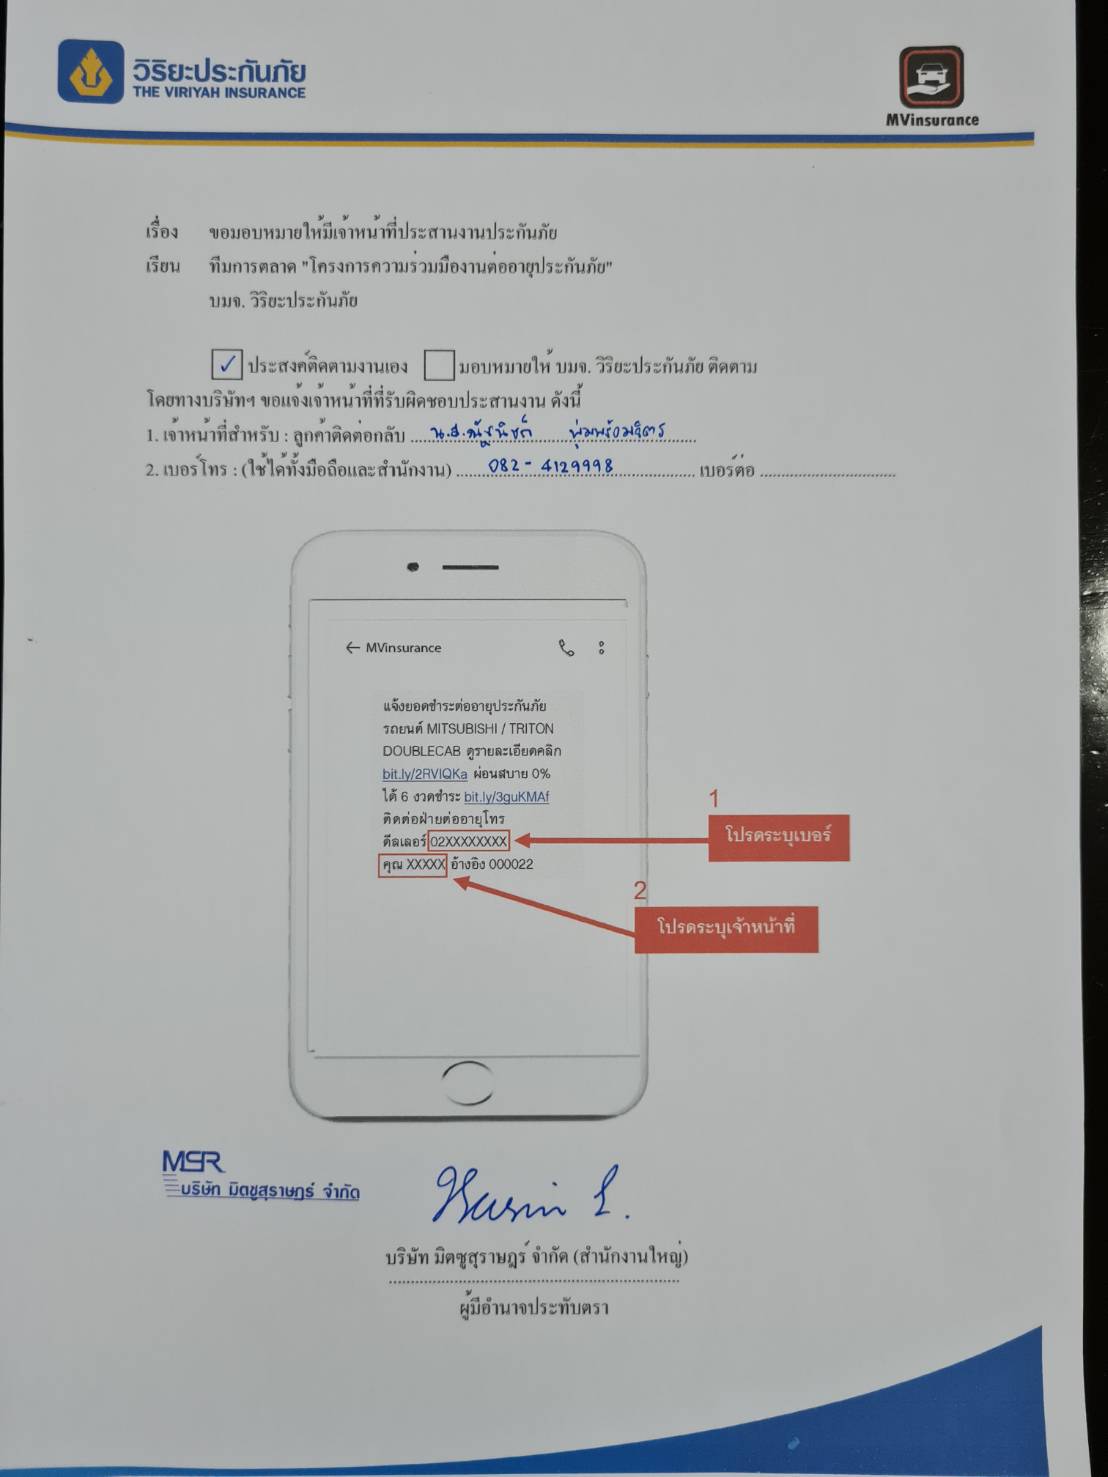 วิริยะประกันภัย
THE VIRIYAH INSURANCE
MVinsurance
เรื่อง ขอมอบหมายให้มีเจ้าหน้าที่ประสานงานประกันภัย
เรียน ทีมการตลาด "โครงการความร่วมมืองานต่ออายุประกันภัย"
บมจ. วิริยะประกันภัย
✓ ประสงค์ติดตามงานเอง มอบหมายให้ บมจ. วิริยะประกันภัย ติดตาม
โดยทางบริษัทฯ ขอแจ้งเจ้าหน้าที่ที่รับผิดชอบประสานงาน ดังนี้
1. เจ้าหน้าที่สำหรับ : ลูกค้าติดต่อกลับ น.ส.ณัฐนิชก์ พุ่มพร้อมจิตร
2. เบอร์โทร : (ใช้ได้ทั้งมือถือและสำนักงาน) 082-4129998 เบอร์ต่อ
← MVinsurance
แจ้งยอดชำระต่ออายุประกันภัย
รถยนต์ MITSUBISHI / TRITON
DOUBLECAB ดูรายละเอียดคลิก
bit.ly/2RVIQKa ผ่อนสบาย 0%
ได้ 6 งวดชำระ bit.ly/3guKMAf
ติดต่อฝ่ายต่ออายุโทร
ดีลเลอร์ 02XXXXXXXX
คุณ XXXXX อ้างอิง 000022
1
โปรดระบุเบอร์
2
โปรดระบุเจ้าหน้าที่
MSR
บริษัท มิตซูสุราษฎร์ จำกัด
บริษัท มิตซูสุราษฎร์ จำกัด (สำนักงานใหญ่)
ผู้มีอำนาจประทับตรา